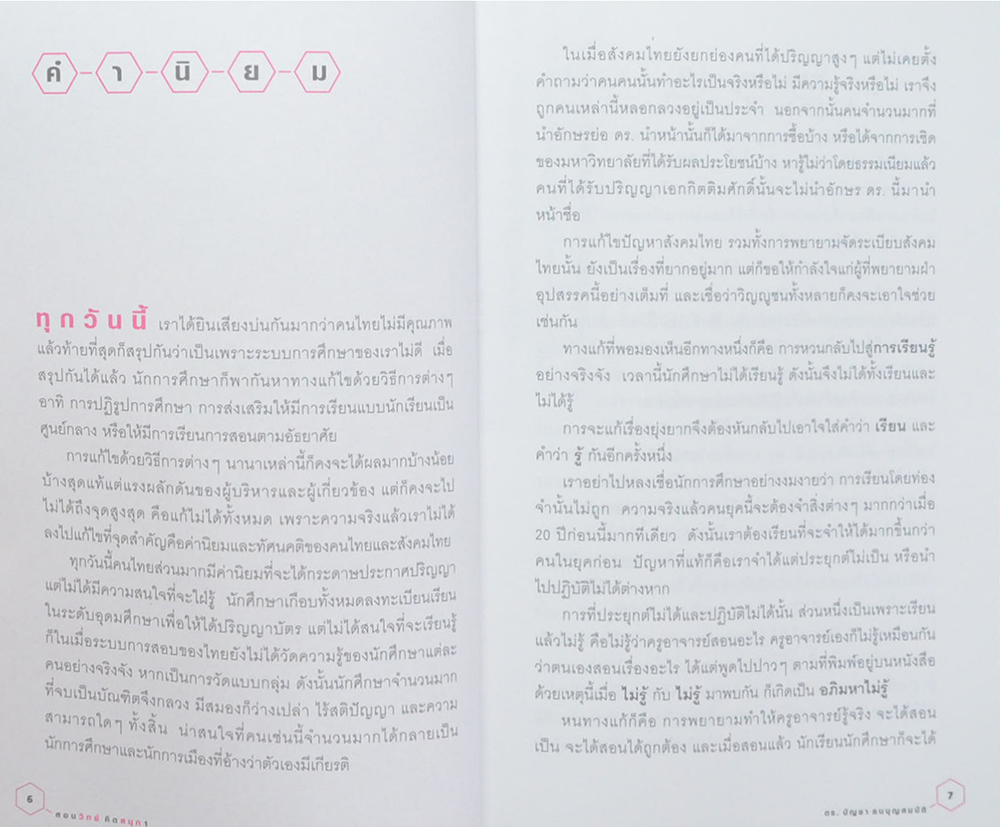 คำนิยม
ทุกวันนี้ เราได้ยินเสียงบ่นกันมากว่าคนไทยไม่มีคุณภาพ
แล้วท้ายที่สุดก็สรุปกันว่าเป็นเพราะระบบการศึกษาของเราไม่ดี เมื่อ
สรุปกันได้แล้ว นักการศึกษาก็พากันหาทางแก้ไขด้วยวิธีการต่างๆ
อาทิ การปฏิรูปการศึกษา การส่งเสริมให้มีการเรียนแบบนักเรียนเป็น
ศูนย์กลาง หรือให้มีการเรียนการสอนตามอัธยาศัย
การแก้ไขด้วยวิธีการต่างๆ นานาเหล่านี้ก็คงจะได้ผลมากบ้างน้อย
บ้างสุดแท้แต่แรงผลักดันของผู้บริหารและผู้เกี่ยวข้อง แต่ก็คงจะไป
ไม่ได้ถึงจุดสูงสุด คือแก้ไม่ได้ทั้งหมด เพราะความจริงแล้วเราไม่ได้
ลงไปแก้ไขที่จุดสำคัญคือค่านิยมและทัศนคติของคนไทยและสังคมไทย
ทุกวันนี้คนไทยส่วนมากมีค่านิยมที่จะได้กระดาษประกาศปริญญา
แต่ไม่ได้มีความสนใจที่จะใฝ่รู้ นักศึกษาเกือบทั้งหมดลงทะเบียนเรียน
ในระดับอุดมศึกษาเพื่อให้ได้ปริญญาบัตร แต่ไม่ได้สนใจที่จะเรียนรู้
ก็ในเมื่อระบบการสอบของไทยยังไม่ได้วัดความรู้ของนักศึกษาแต่ละ
คนอย่างจริงจัง หากเป็นการวัดแบบกลุ่ม ดังนั้นนักศึกษาจำนวนมาก
ที่จบเป็นบัณฑิตจึงกลวง มีสมองก็ว่างเปล่า ไร้สติปัญญา และความ
สามารถใดๆ ทั้งสิ้น น่าสนใจที่คนเช่นนี้จำนวนมากได้กลายเป็น
นักการศึกษาและนักการเมืองที่อ้างว่าตัวเองมีเกียรติ
6
สอนวิทย์ คิดสนุก 1
ในเมื่อสังคมไทยยังยกย่องคนที่ได้ปริญญาสูงๆ แต่ไม่เคยตั้ง
คำถามว่าคนคนนั้นทำอะไรเป็นจริงหรือไม่ มีความรู้จริงหรือไม่ เราจึง
ถูกคนเหล่านี้หลอกลวงอยู่เป็นประจำ นอกจากนั้นคนจำนวนมากที่
นำอักษรย่อ ดร. นำหน้านั้นก็ได้มาจากการซื้อบ้าง หรือได้จากการเชิด
ของมหาวิทยาลัยที่ได้รับผลประโยชน์บ้าง หารู้ไม่ว่าโดยธรรมเนียมแล้ว
คนที่ได้รับปริญญาเอกกิตติมศักดิ์นั้นจะไม่นำอักษร ดร. นี้มานำ
หน้าชื่อ
การแก้ไขปัญหาสังคมไทย รวมทั้งการพยายามจัดระเบียบสังคม
ไทยนั้น ยังเป็นเรื่องที่ยากอยู่มาก แต่ก็ขอให้กำลังใจแก่ผู้ที่พยายามฝ่า
อุปสรรคนี้อย่างเต็มที่ และเชื่อว่าวิญญูชนทั้งหลายก็คงจะเอาใจช่วย
เช่นกัน
ทางแก้ที่พอมองเห็นอีกทางหนึ่งก็คือ การหวนกลับไปสู่การเรียนรู้
อย่างจริงจัง เวลานี้นักศึกษาไม่ได้เรียนรู้ ดังนั้นจึงไม่ได้ทั้งเรียนและ
ไม่ได้รู้
การจะแก้เรื่องยุ่งยากจึงต้องหันกลับไปเอาใจใส่คำว่า เรียน และ
คำว่า รู้ กันอีกครั้งหนึ่ง
เราอย่าไปหลงเชื่อนักการศึกษาอย่างงมงายว่า การเรียนโดยท่อง
จำนั้นไม่ถูก ความจริงแล้วคนยุคนี้จะต้องจำสิ่งต่างๆ มากกว่าเมื่อ
20 ปีก่อนนี้มากทีเดียว ดังนั้นเราต้องเรียนที่จะจำให้ได้มากขึ้นกว่า
คนในยุคก่อน ปัญหาที่แท้ก็คือเราจำได้แต่ประยุกต์ไม่เป็น หรือนำ
ไปปฏิบัติไม่ได้ต่างหาก
การที่ประยุกต์ไม่ได้และปฏิบัติไม่ได้นั้น ส่วนหนึ่งเป็นเพราะเรียน
แล้วไม่รู้ คือไม่รู้ว่าครูอาจารย์สอนอะไร ครูอาจารย์เองก็ไม่รู้เหมือนกัน
ว่าตนเองสอนเรื่องอะไร ได้แต่พูดไปปาวๆ ตามที่พิมพ์อยู่บนหนังสือ
ด้วยเหตุนี้เมื่อ ไม่รู้ กับ ไม่รู้ มาพบกัน ก็เกิดเป็น อภิมหาไม่รู้
หนทางแก้ก็คือ การพยายามทำให้ครูอาจารย์รู้จริง จะได้สอน
เป็น จะได้สอนได้ถูกต้อง และเมื่อสอนแล้ว นักเรียนนักศึกษาก็จะได้
ดร. บัญชา ธนบุญสมบัติ
7